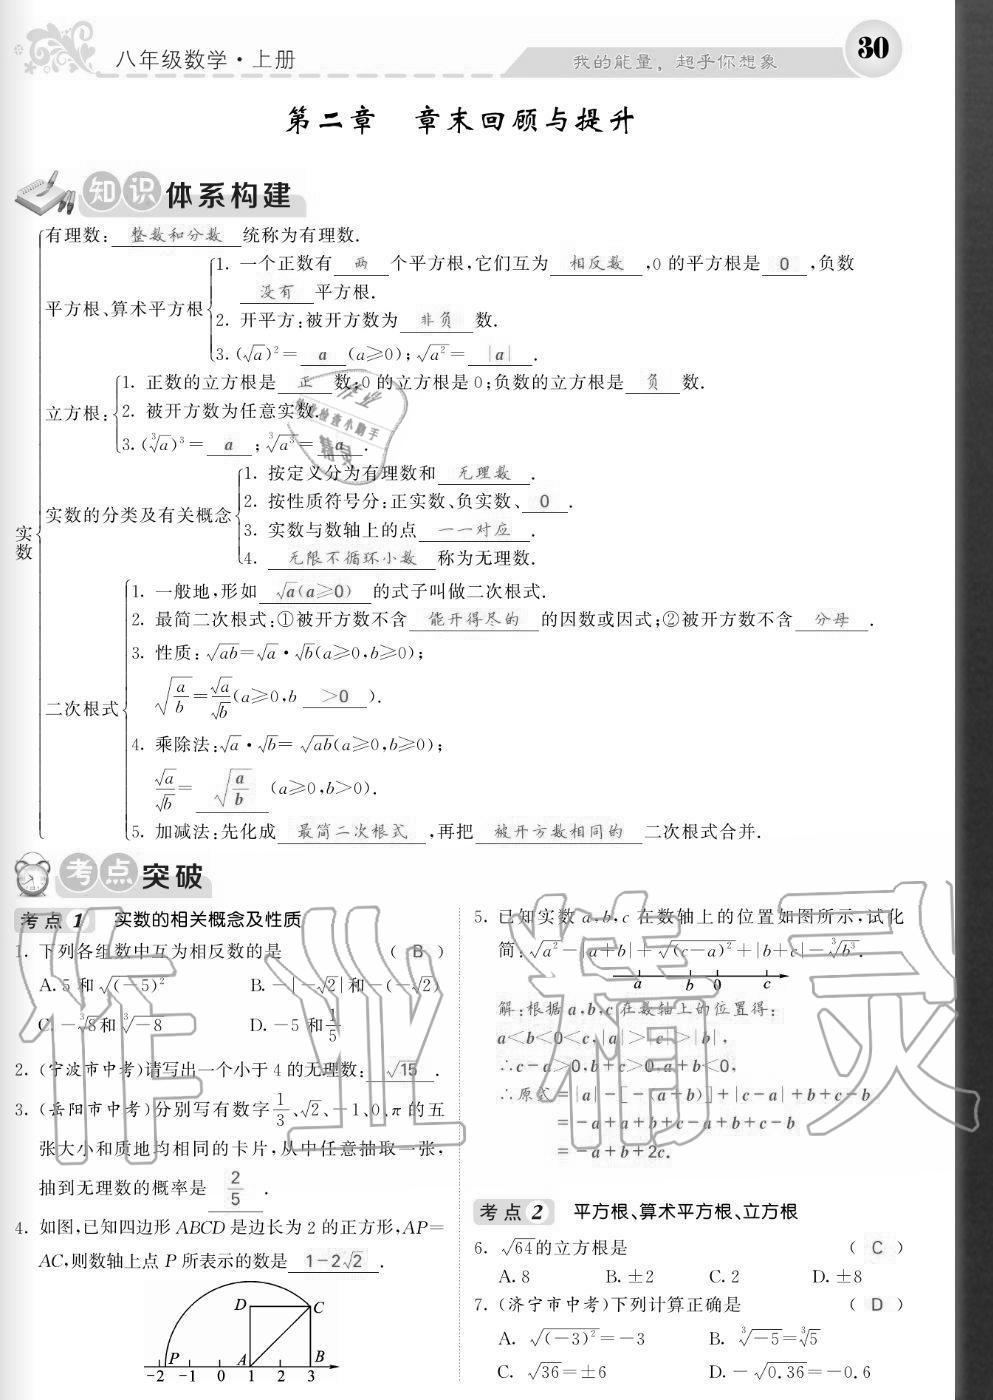 八年级数学·上册
我的能量，超乎你想象
30
第二章 章末回顾与提升
知识 体系构建
实数
有理数: 整数和分数 统称为有理数.
平方根、算术平方根
1. 一个正数有 两 个平方根,它们互为 相反数 ,0 的平方根是 0 ,负数
没有 平方根.
2. 开平方:被开方数为 非负 数.
3. (√a)²= a (a≥0); √a²= |a| .
立方根:
1. 正数的立方根是 正 数;0 的立方根是 0;负数的立方根是 负 数.
2. 被开方数为任意实数.
3. (∛a)³= a ; ∛a³= a .
实数的分类及有关概念
1. 按定义分为有理数和 无理数 .
2. 按性质符号分:正实数、负实数、 0 .
3. 实数与数轴上的点 一一对应 .
4. 无限不循环小数 称为无理数.
二次根式
1. 一般地,形如 √a(a≥0) 的式子叫做二次根式.
2. 最简二次根式:①被开方数不含 能开得尽的 的因数或因式;②被开方数不含 分母 .
3. 性质: √ab=√a·√b(a≥0,b≥0);
√(a/b)=√a/√b(a≥0,b >0 ).
4. 乘除法:√a·√b= √ab(a≥0,b≥0);
√a/√b= √(a/b) (a≥0,b>0).
5. 加减法:先化成 最简二次根式 ,再把 被开方数相同的 二次根式合并.
考点 突破
考点 1 实数的相关概念及性质
1. 下列各组数中互为相反数的是 ( B )
A. 5 和 √(-5)² B. -|-√2|和-(-√2)
C. -∛8和∛-8 D. -5 和 1/5
2. (宁波市中考)请写出一个小于 4 的无理数: √15 .
3. (岳阳市中考)分别写有数字 1/3、√2、-1、0、π 的五
张大小和质地均相同的卡片,从中任意抽取一张,
抽到无理数的概率是 2/5 .
4. 如图,已知四边形 ABCD 是边长为 2 的正方形,AP=
AC,则数轴上点 P 所表示的数是 1-2√2 .
D C
P A B
-2 -1 0 1 2 3
5. 已知实数 a,b,c 在数轴上的位置如图所示,试化
简: √a²-|a+b|+√(c-a)²+|b+c|-∛b³.
a b 0 c
解:根据 a,b,c 在数轴上的位置得:
a<b<0<c,|a|>|c|>|b|,
∴c-a>0,b+c>0,a+b<0,
∴原式=|a|-[-(a+b)]+|c-a|+b+c-b
=-a+a+b+c-a+b+c-b
=-a+b+2c.
考点 2 平方根、算术平方根、立方根
6. √64的立方根是 ( C )
A. 8 B. ±2 C. 2 D. ±8
7. (济宁市中考)下列计算正确是 ( D )
A. √(-3)²=-3 B. ∛-5=∛5
C. √36=±6 D. -√0.36=-0.6
作业精灵
作业
检查小助手
精灵